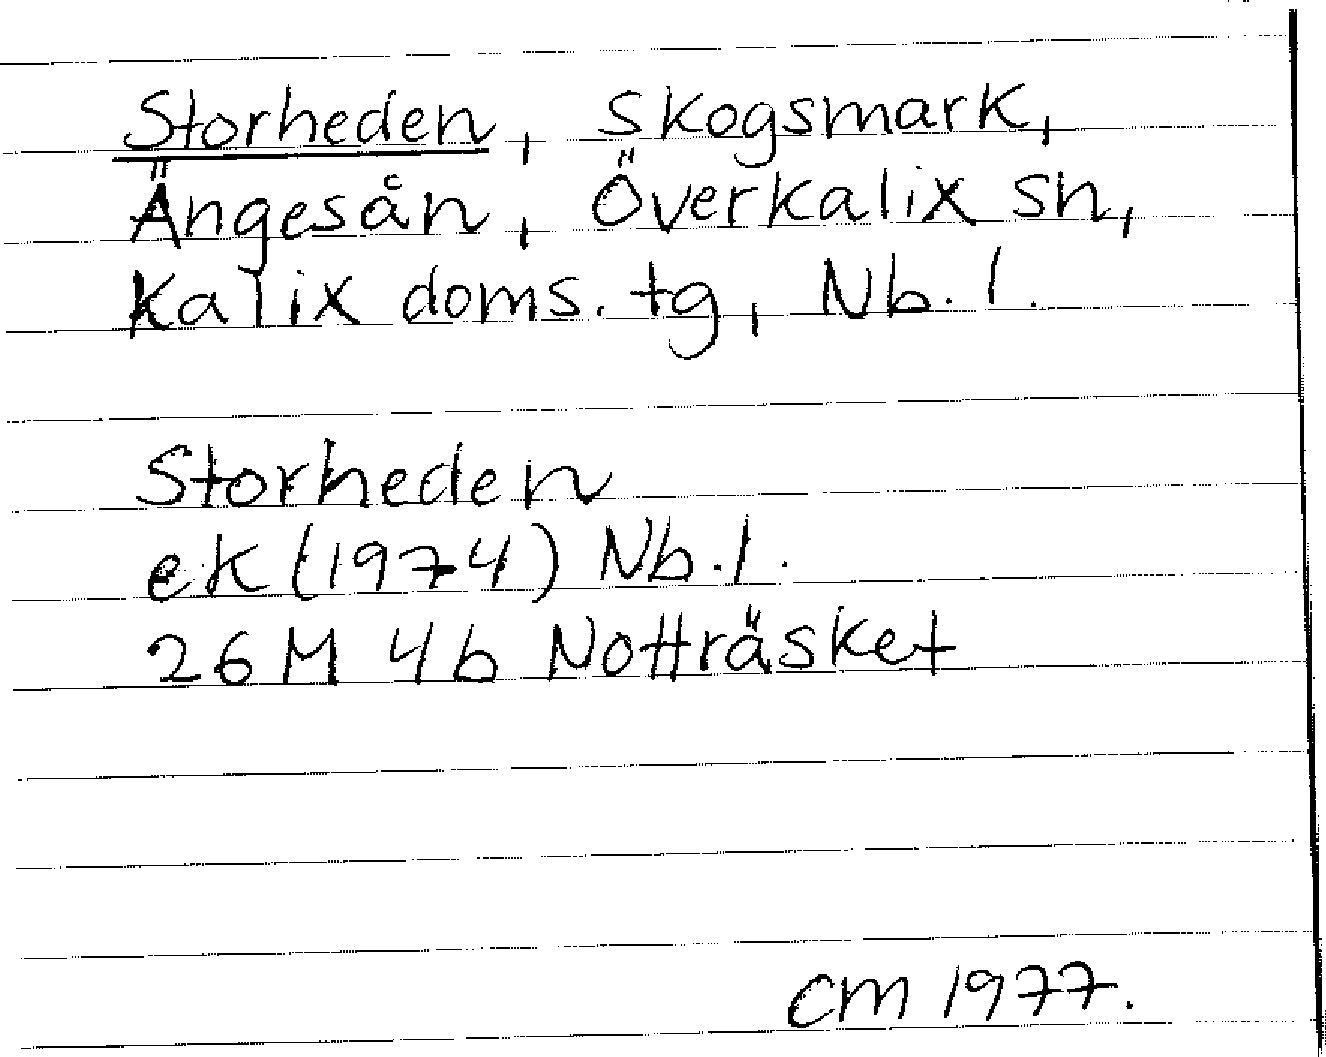 Storheden, skogsmark,
Ängesån, Överkalix sn,
Kalix doms. tg, Nb. l.
Storheden
ek (1974) Nb. l.
26 M 4b Notträsket
CM 1977.